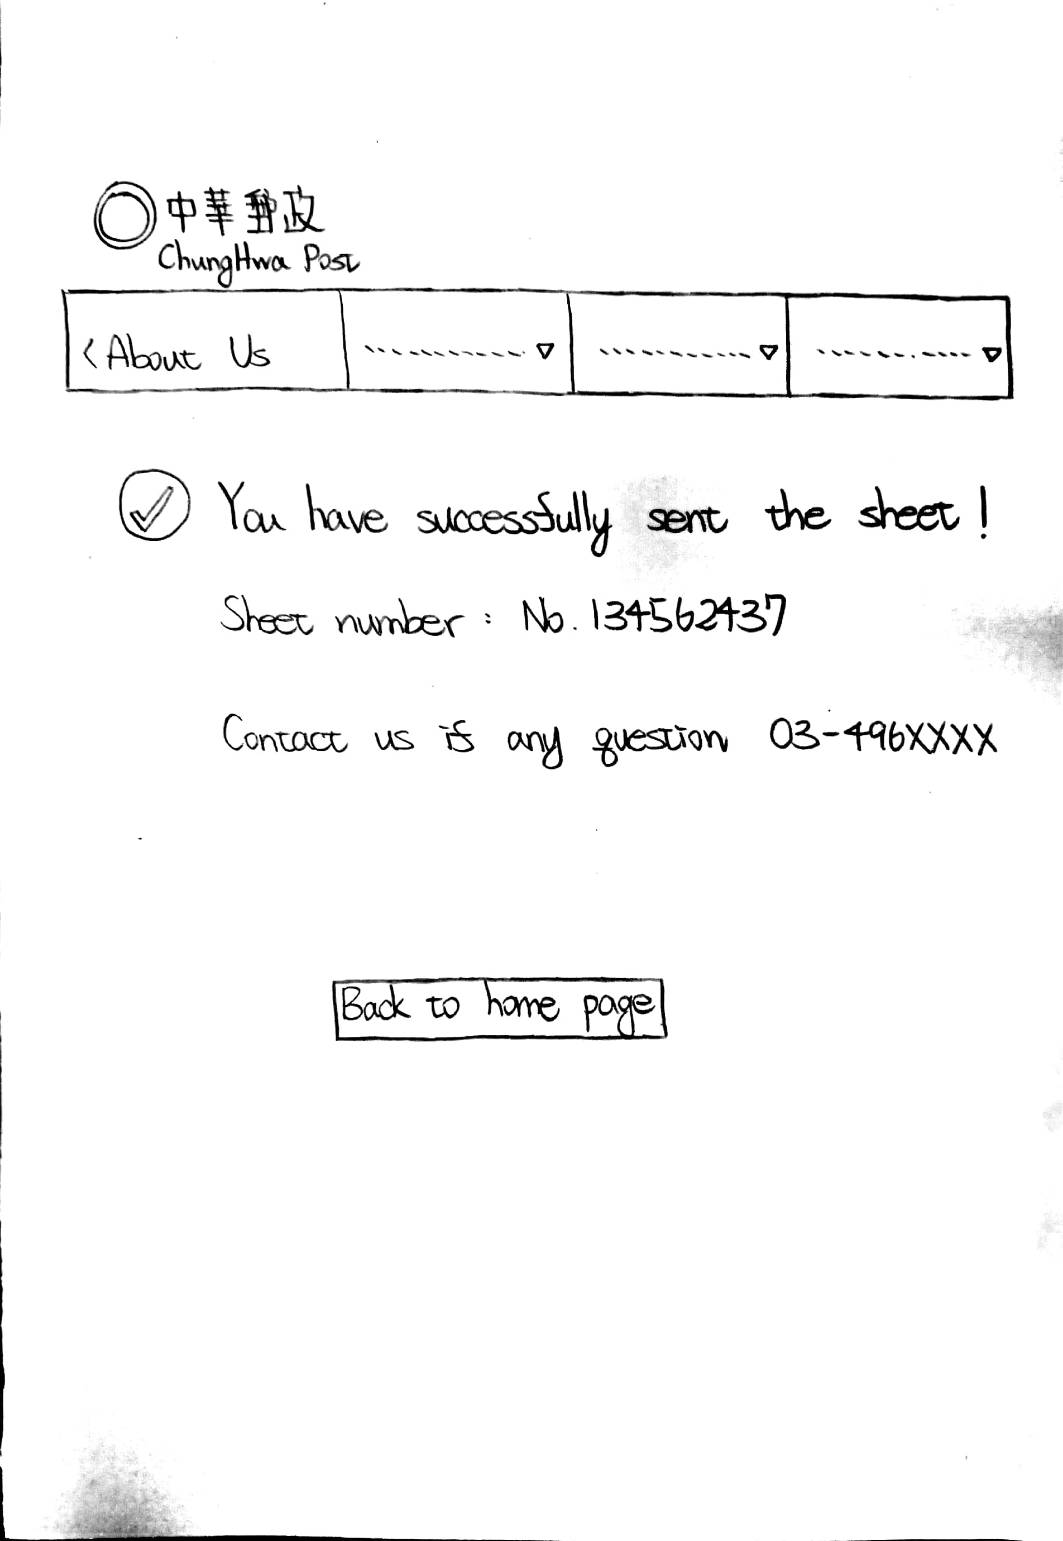 中華郵政
ChungHwa Post
< About Us
You have successfully sent the sheet!
Sheet number : No. 134562437
Contact us if any question 03-496XXXX
Back to home page